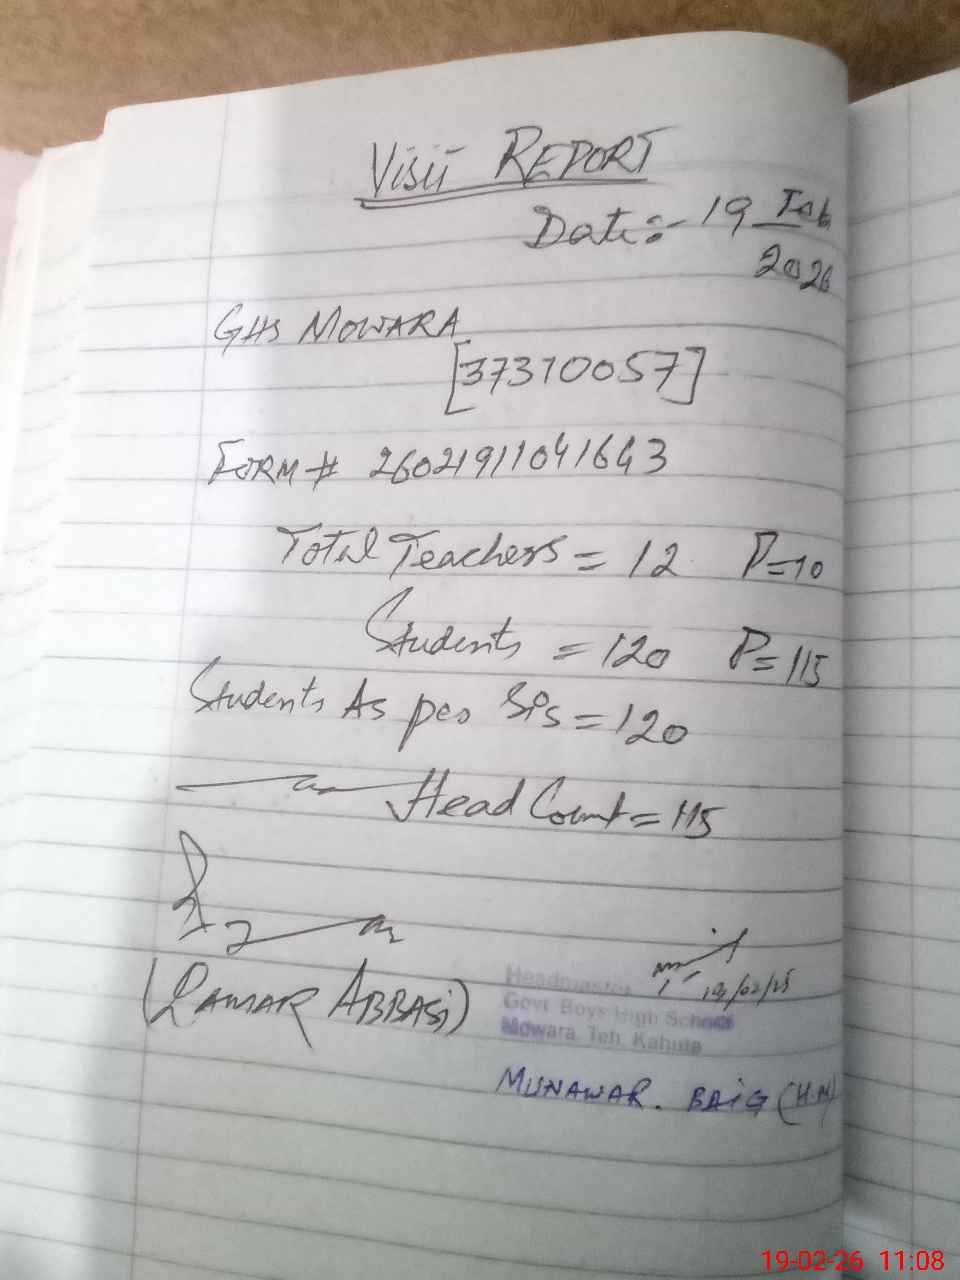 Visit REPORT
Date:- 19 Feb
2026
GHS MOWARA
[37370057]
FORM # 26021911041643
Total Teachers = 12 P=10
Students = 120 P=115
Students As per Sis = 120
Head Count = 115
(QAMAR ABBASi)
19/02/25
Headmaster
Govt Boys High School
Mowara Teh. Kahuta
MUNAWAR. BAiG (H.M)
19-02-26 11:08